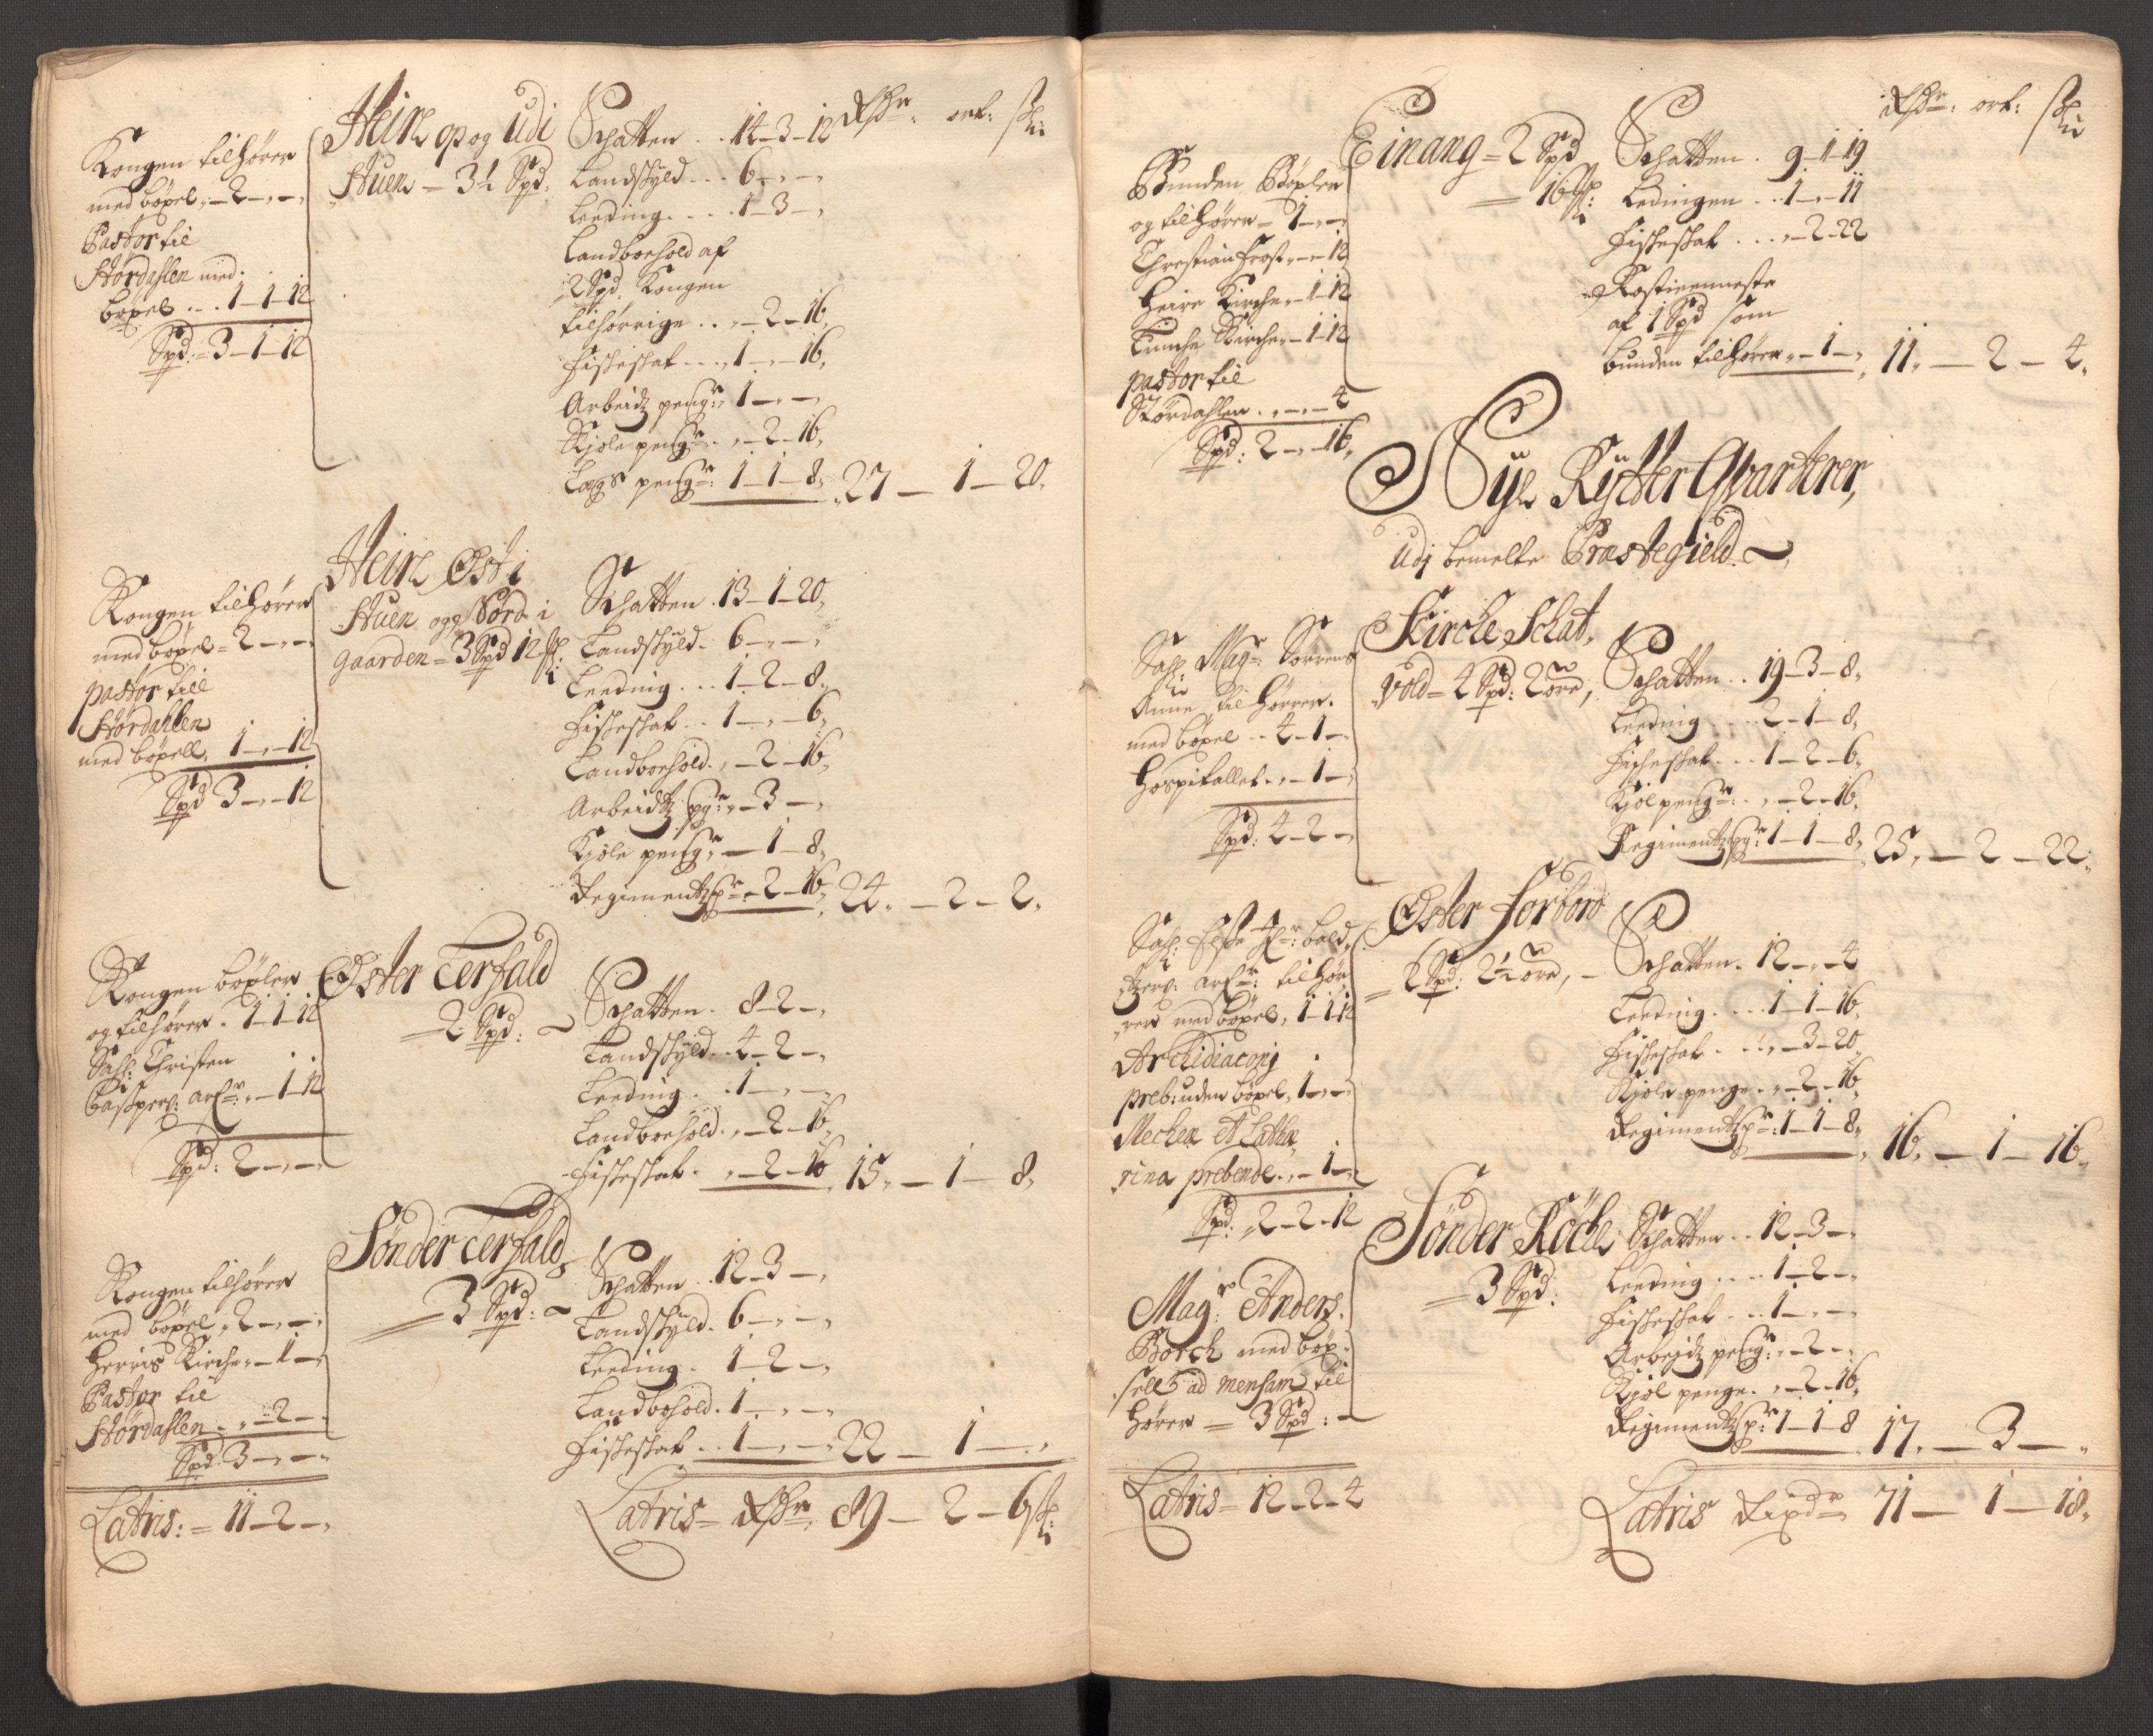 Rdr: ort: sk
Kongen tilhører
med bøxel „ – 2 – „ – „
Pastor til
Størdahlen med
bøxel . . 1 – 1 – 12
Spd: = 3 – 1 – 12
Heire op og Udi
Stuen = 3½ Spd.
Schatten . . 14 – 3 – 12
Landskyld . . . 6 – „ – „
Leeding . . . . 1 – 3 – „
Landboehold af
2 Spd. Kongen
tilhørrige . . „ – 2 – 16,
Fiskeskat . . . „ 1 – „ – 16,
Arbeidtz pengr: 1 – „ – „
Kjole pengr: . „ – 2 – 16,
Laegs pengr: 1 – 1 – 8, 27 – 1 – 20,
Kongen tilhører
med bøxel = 2 – „ – „
pastor till
Størdahlen
med bøxell, 1 – „ – 12
Spd 3 – „ – 12
Heire Øst i
Stuen og Nord i
gaarden = 3 Spd 12 sk:
Schatten . 13 – 1 – 20,
Landskyld – 6 – „ – „
Leeding . . . 1 – 2 – 8,
Fiskeskat . . 1 – „ – 6,
Landboehold. „ – 2 – 16,
Arbeidtz pgr: „ – 3 – „
Kjole pengr „ – 1 – 8,
Regimentz pr: „ – 2 – 16, 24. – 2 – 2,
Kongen bøxler
og tilhører . 1 – 1 – 12
Sahl: Christen
Casspers: arfr: „ – 1 – 12
Spd: 2 – „ – „
Øster Terfald
= 2 Spd: ~
Schatten . 8 – 2 – „
Landskyld . 4 – 2 – „
Leeding . . 1 – „ – „
Landboehold. „ – 2 – 16,
Fiskeskat . „ – 2 – 16 15, – 1 – 8,
Kongen tilhører
med bøxel „ 2 – „ – „
Herris Kirche „ – 1 – „
Pastor til
Størdahlen . „ – 2 – „
Spd 3 – „ – „
Sønder Terfald
= 3 Spd: ~
Schatten . . 12 – 3 – „
Landskyld . 6 – „ – „
Leeding . 1 – 2 – „
Landbohold . 1 – „ – „
Fiskeskat . . 1 – „ – „ 22 – 1 – „
Latris: = 11 – 2 – „
Latris = Rdr 89 – 2 – 6 sk:
Rdr: ort: sk
Bunden Bøxler
og tilhører – 1 – „ – „
Christian Frost „ – „ – 12
Heire Kirche „ – 1 – 12
Lunche Kirche „ – 1 – 12
pastor til
Størdahlen . „ – „ – 4
Spd: 2 – „ – 16,
Einang = 2 Spd
= 16 sk:
Schatten . 9 – 1 – 19
Ledingen . . 1 – „ – 11
Fiskeskat . . . „ – 2 – 22
Rostieenneste
af 1 Spd som
bunden tilhører „ – 1 – „ 11, – 2 – 4,
Nye Rytter Qvarterer,
Udj bemelte Præstegield. ~
Sahl Magr: Sørrens
Anne tilhørrer.
med bøxel . . 4 – 1 – „
Hospitallet . „ – 1 – „
Spd: 4 – 2 – „
Kirche Schat,
Vold = 4 Spd: 2 øre,
Schatten . . 19 – 3 – 8,
Leeding . . . 2 – 1 – 8,
Fiskeskat . . . 1 – 2 – 6,
Kjol pengr: . „ – 2 – 16,
Regimentz pgr: 1 – 1 – 8, 25, – 2 – 22,
Sahl: Else Hr: Bald-
tzers: arfr: tilhør-
rer med bøxel, 1 – 1 – 12
Archidiaconj
preb: uden bøxel, 1 – „ – „
Mechen et Catha-
rina prebende . „ – 1 – „
Spd: „ 2 – 2 – 12
Øster Forbord
= 2 Spd: 2½ øre, –
Schatten . 12 – „ – 4
Leeding . . . 1 – 1 – 16,
Fiskeskat . . „ – 3 – 20
Kjole penge . „ – 2 – 16,
Regimentz pr: 1 – 1 – 8, 16, – 1 – 16,
Magr: Anders
Borch med bøx-
sell ad mensam til
hører = 3 Spd: –
Sønder Röche
= 3 Spd:
Schatten . . 12 – 3 – „
Leeding . . . . 1 – 2 – „
Fiskeskat . . . 1 – „ – „
Arbejdtz pengr: „ – 2 – „
Kjol penge . „ – 2 – 16,
Regimentz pr: 1 – 1 – 8 17, – 3 – „
Latris = 12 – 2 – 4
Latris Rixdr 71 – 1 – 18,